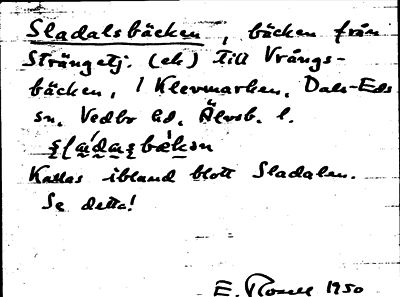 Sladalsbäcken, bäcken från
Strängetj. (ek) till Vrångs-
bäcken, i Klevmarken, Dals-Eds
sn. Vedbo hd. Älvsb. l.
Kallas ibland blott Sladalen.
Se detta!
E. Rosell 1950